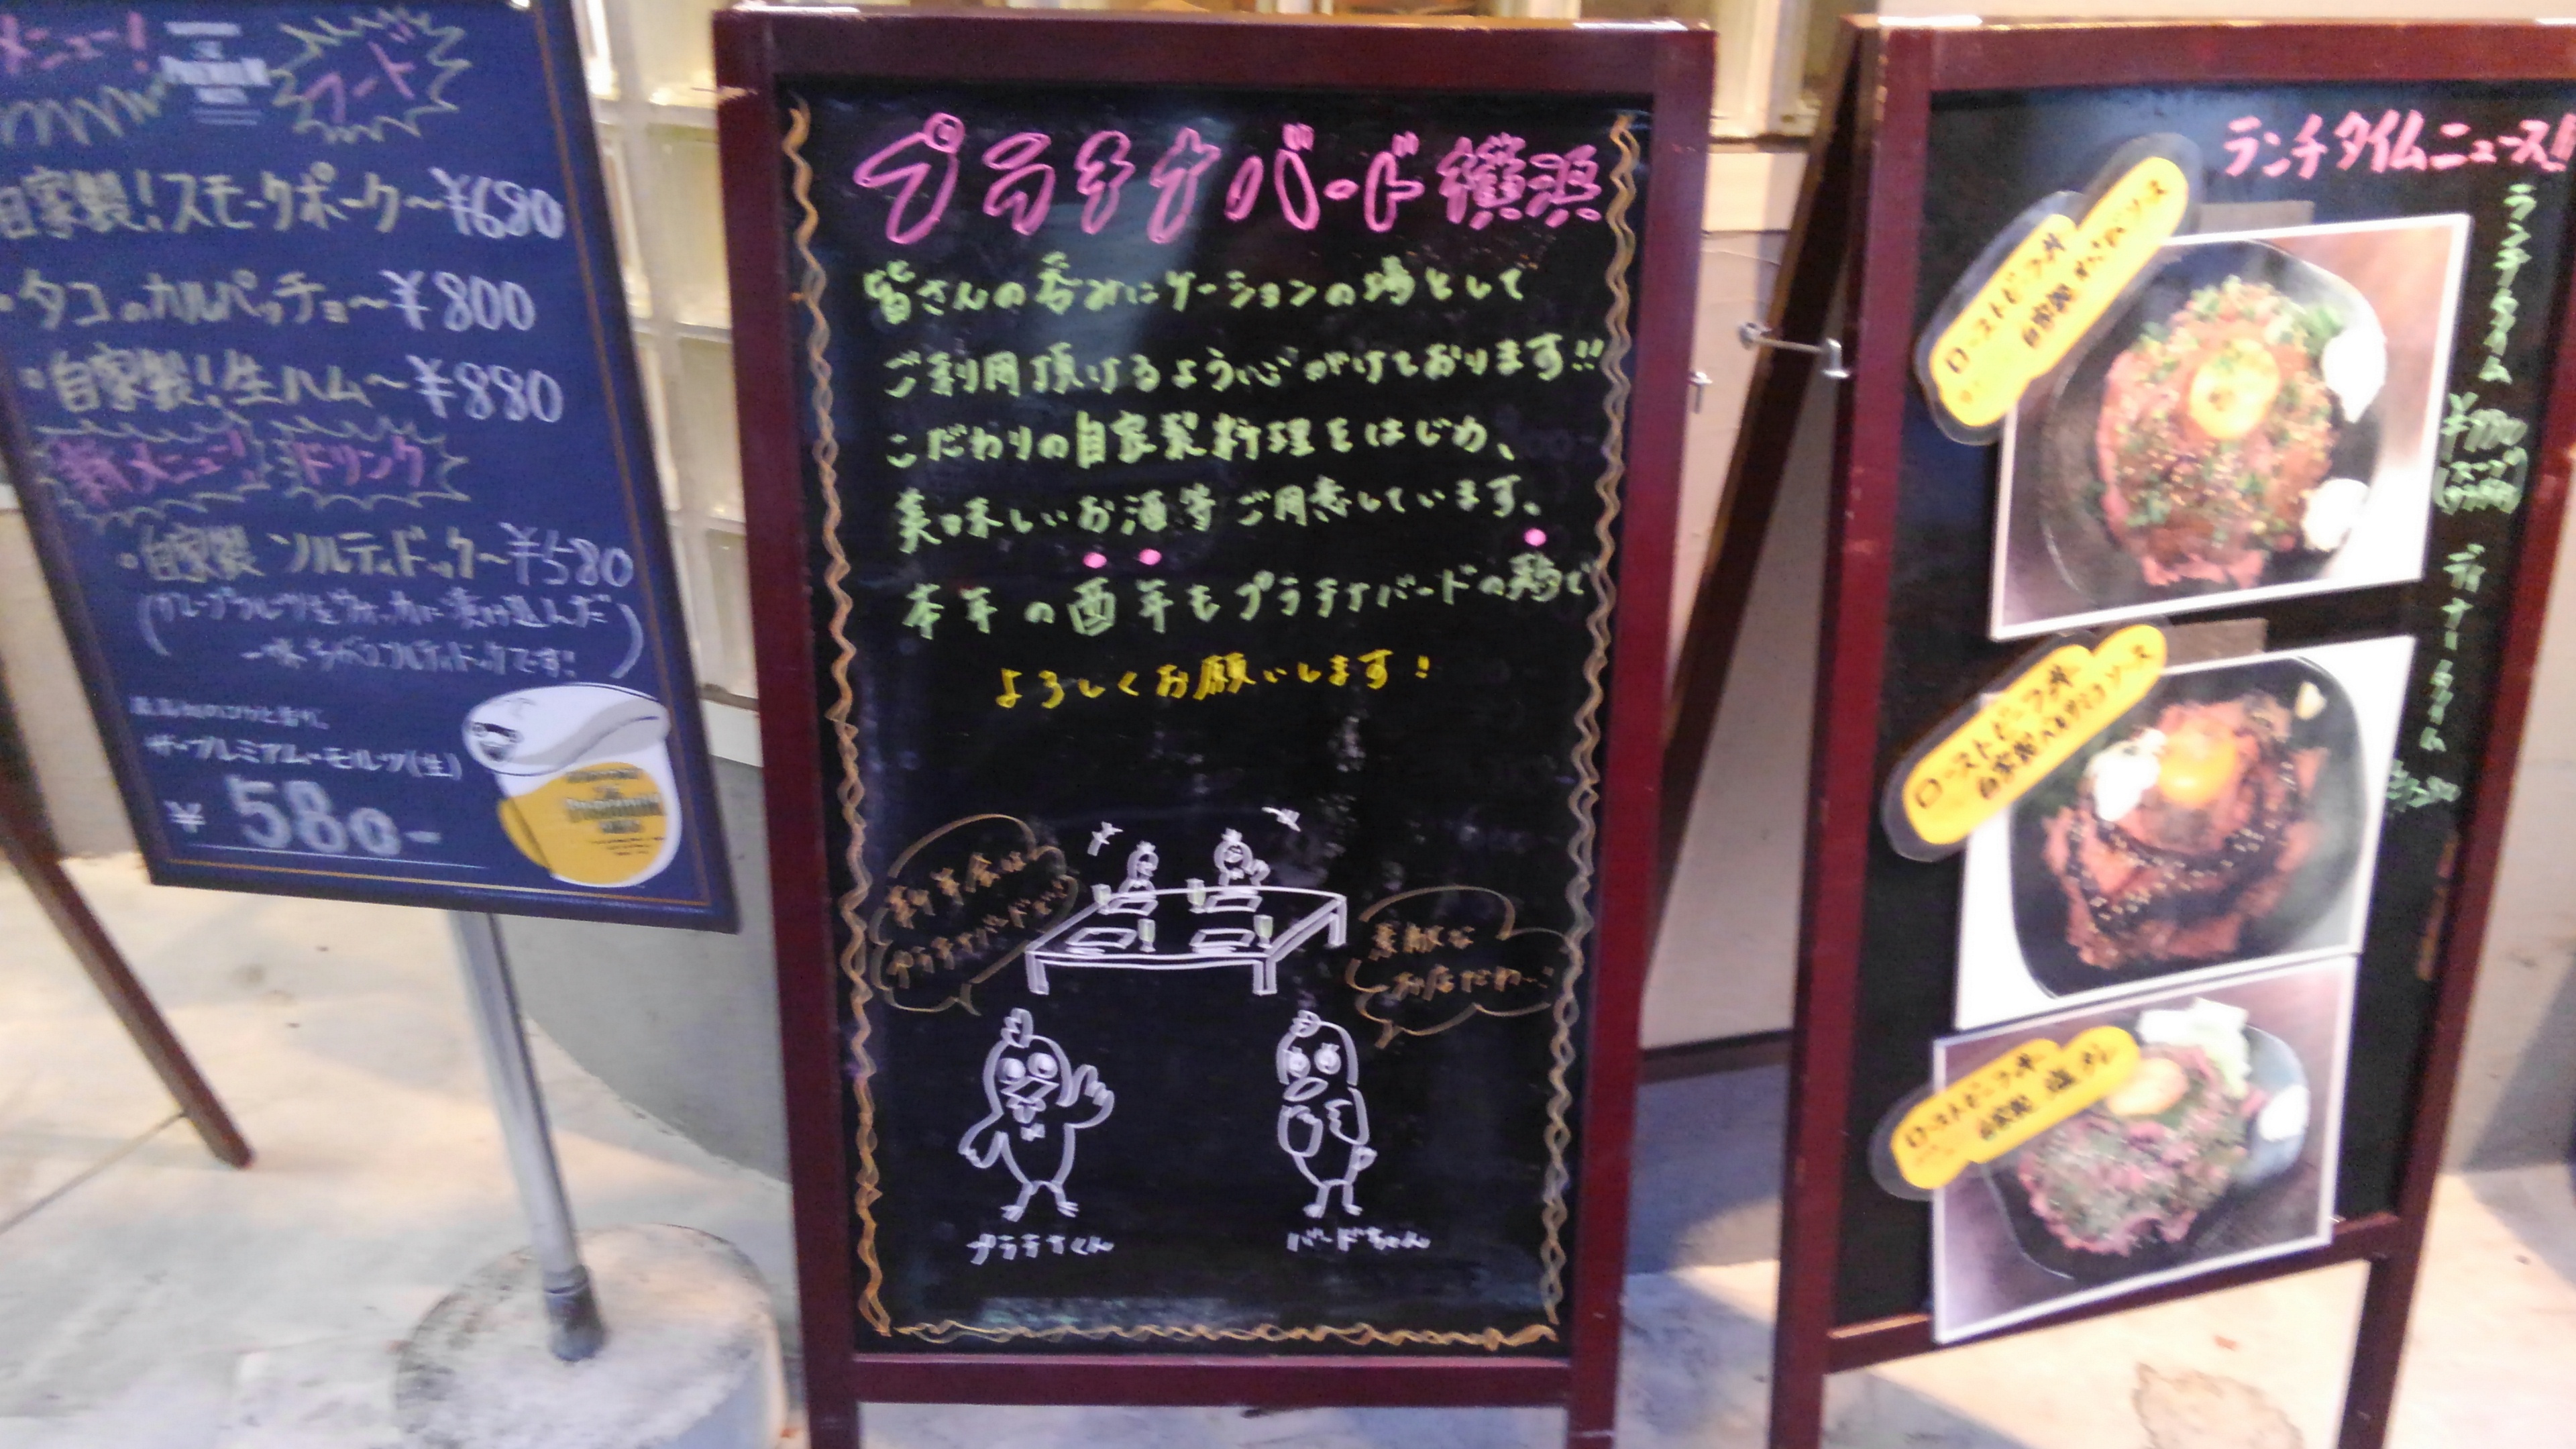 メニュー!
フード
自家製!スモークポーク〜¥680
・タコのカルパッチョ〜¥800
・自家製!生ハム〜¥880
新メニュー! ドリンク
・自家製 ソルティドック〜¥580
ザ・プレミアム・モルツ(生)
¥580-
プラチナバード横浜
皆さんの呑みにケーションの場として
ご利用頂けるよう心がけております!!
こだわりの自家製料理をはじめ、
美味しいお酒等ご用意しています。
本年の酉年もプラチナバードの鶏で
よろしくお願いします!
新年会は
プラチナバードで!!
素敵な
お店だわ…
プラチナくん
バードちゃん
ランチタイムニュース!!
ランチタイム
ディナータイム
ローストビーフ丼
自家製
ローストビーフ丼
自家製 ソース
ローストビーフ丼
自家製 塩ダレ